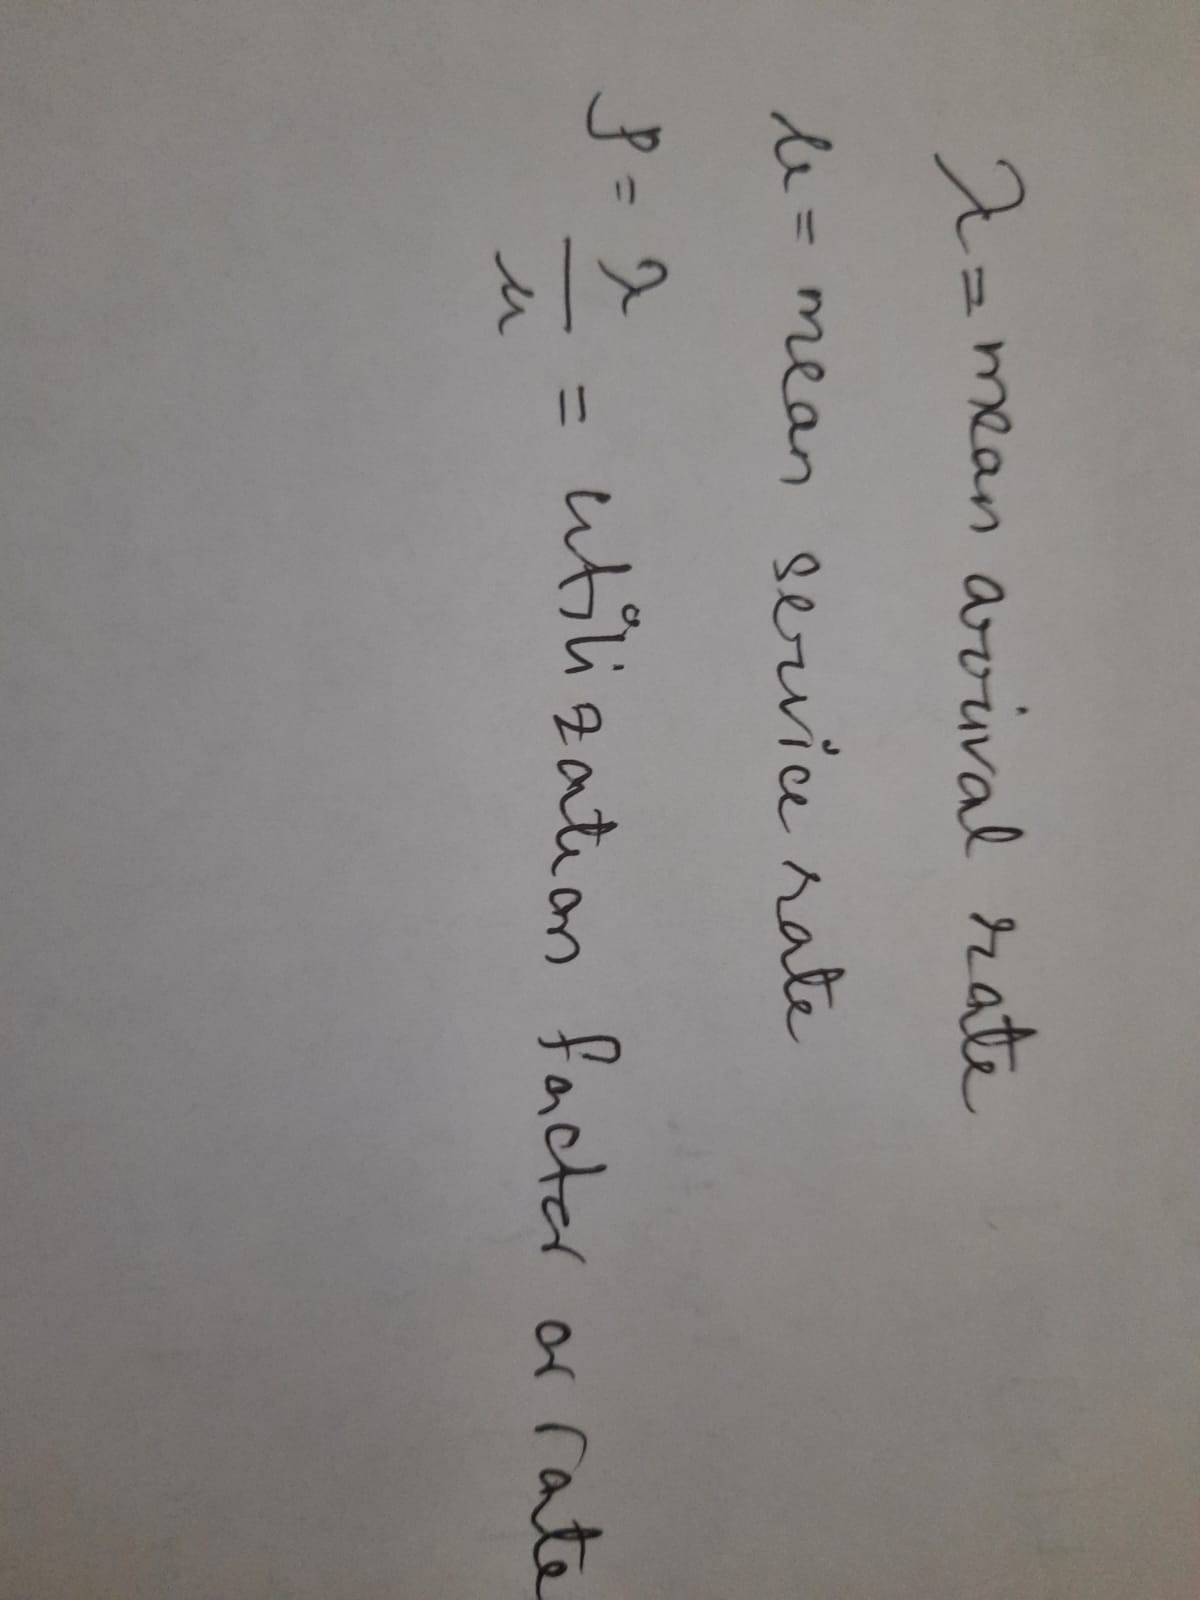 λ = mean arrival rate
μ = mean service rate
ρ = λ/μ = utilization factor or rate